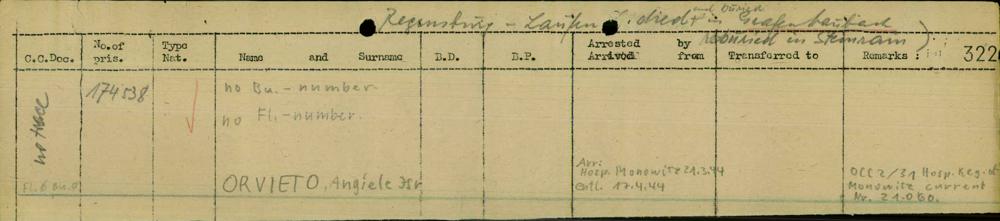 Regensburg - Laufen (died and buried in Grafentraubach
reburied in Steinrain)
322
C.C.Doc. No.of pris. Type Nat. Name and Surname B.D. B.P. Arrested Arrived by from Transferred to Remarks :
no trace 174538 no Bu.-number
no Fl.-number.
Fl. & Bu. ORVIETO, Angiele Isr. Arr: Hosp. Monowitz 21.3.44 OCC 2/31 Hosp. Reg. of
entl. 17.4.44 Monowitz current
Nr. 21.060.